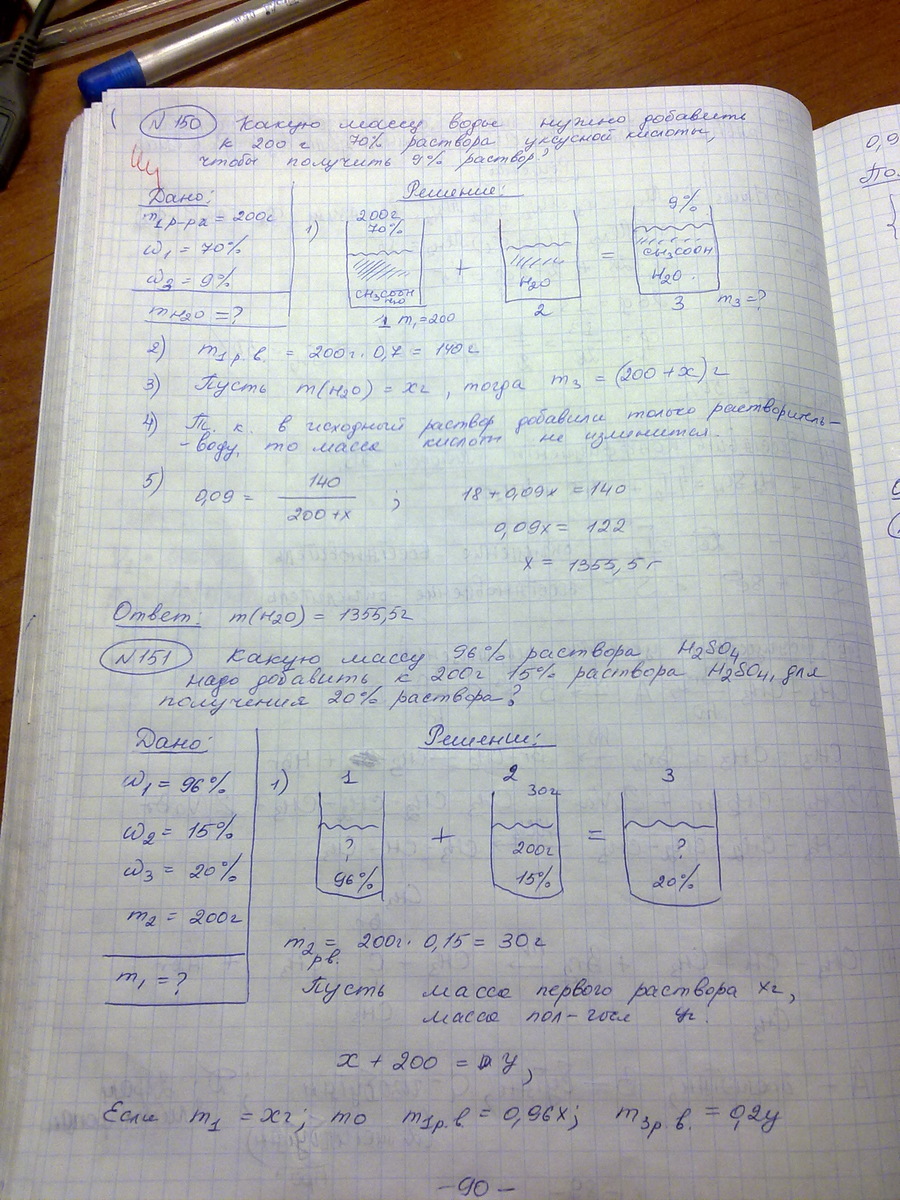 N 150 Какую массу воды нужно добавить
к 200 г 70% раствора уксусной кислоты,
чтобы получить 9% раствор?
Дано:
m1р-ра = 200г
ω1 = 70%
ω2 = 9%
mH2O = ?
Решение:
1)
200г
70%
CH3COOH
H2O
1 m1=200
+
H2O
2
=
9%
CH3COOH
H2O
3 m3=?
2) m1р.в. = 200г · 0,7 = 140г
3) Пусть m(H2O) = xг, тогда m3 = (200+x)г
4) Т. к. в исходный раствор добавили только растворитель-
-воду, то масса кислот не изменится.
5) 0,09 = 140 / 200+x ; 18+0,09x = 140
0,09x = 122
x = 1355,5 г
Ответ: m(H2O) = 1355,5г
N151 Какую массу 96% раствора H2SO4
надо добавить к 200г 15% раствора H2SO4, для
получения 20% раствора?
Дано:
ω1 = 96%
ω2 = 15%
ω3 = 20%
m2 = 200г
m1 = ?
Решение:
1)
1
?
96%
+
2
30г
200г
15%
=
3
?
20%
m2р.в. = 200г · 0,15 = 30г
Пусть масса первого раствора xг,
масса пол-гося yг.
x + 200 = y,
Если m1 = xг; то m1р.в = 0,96x; m3р.в. = 0,2y
-90-
0,9